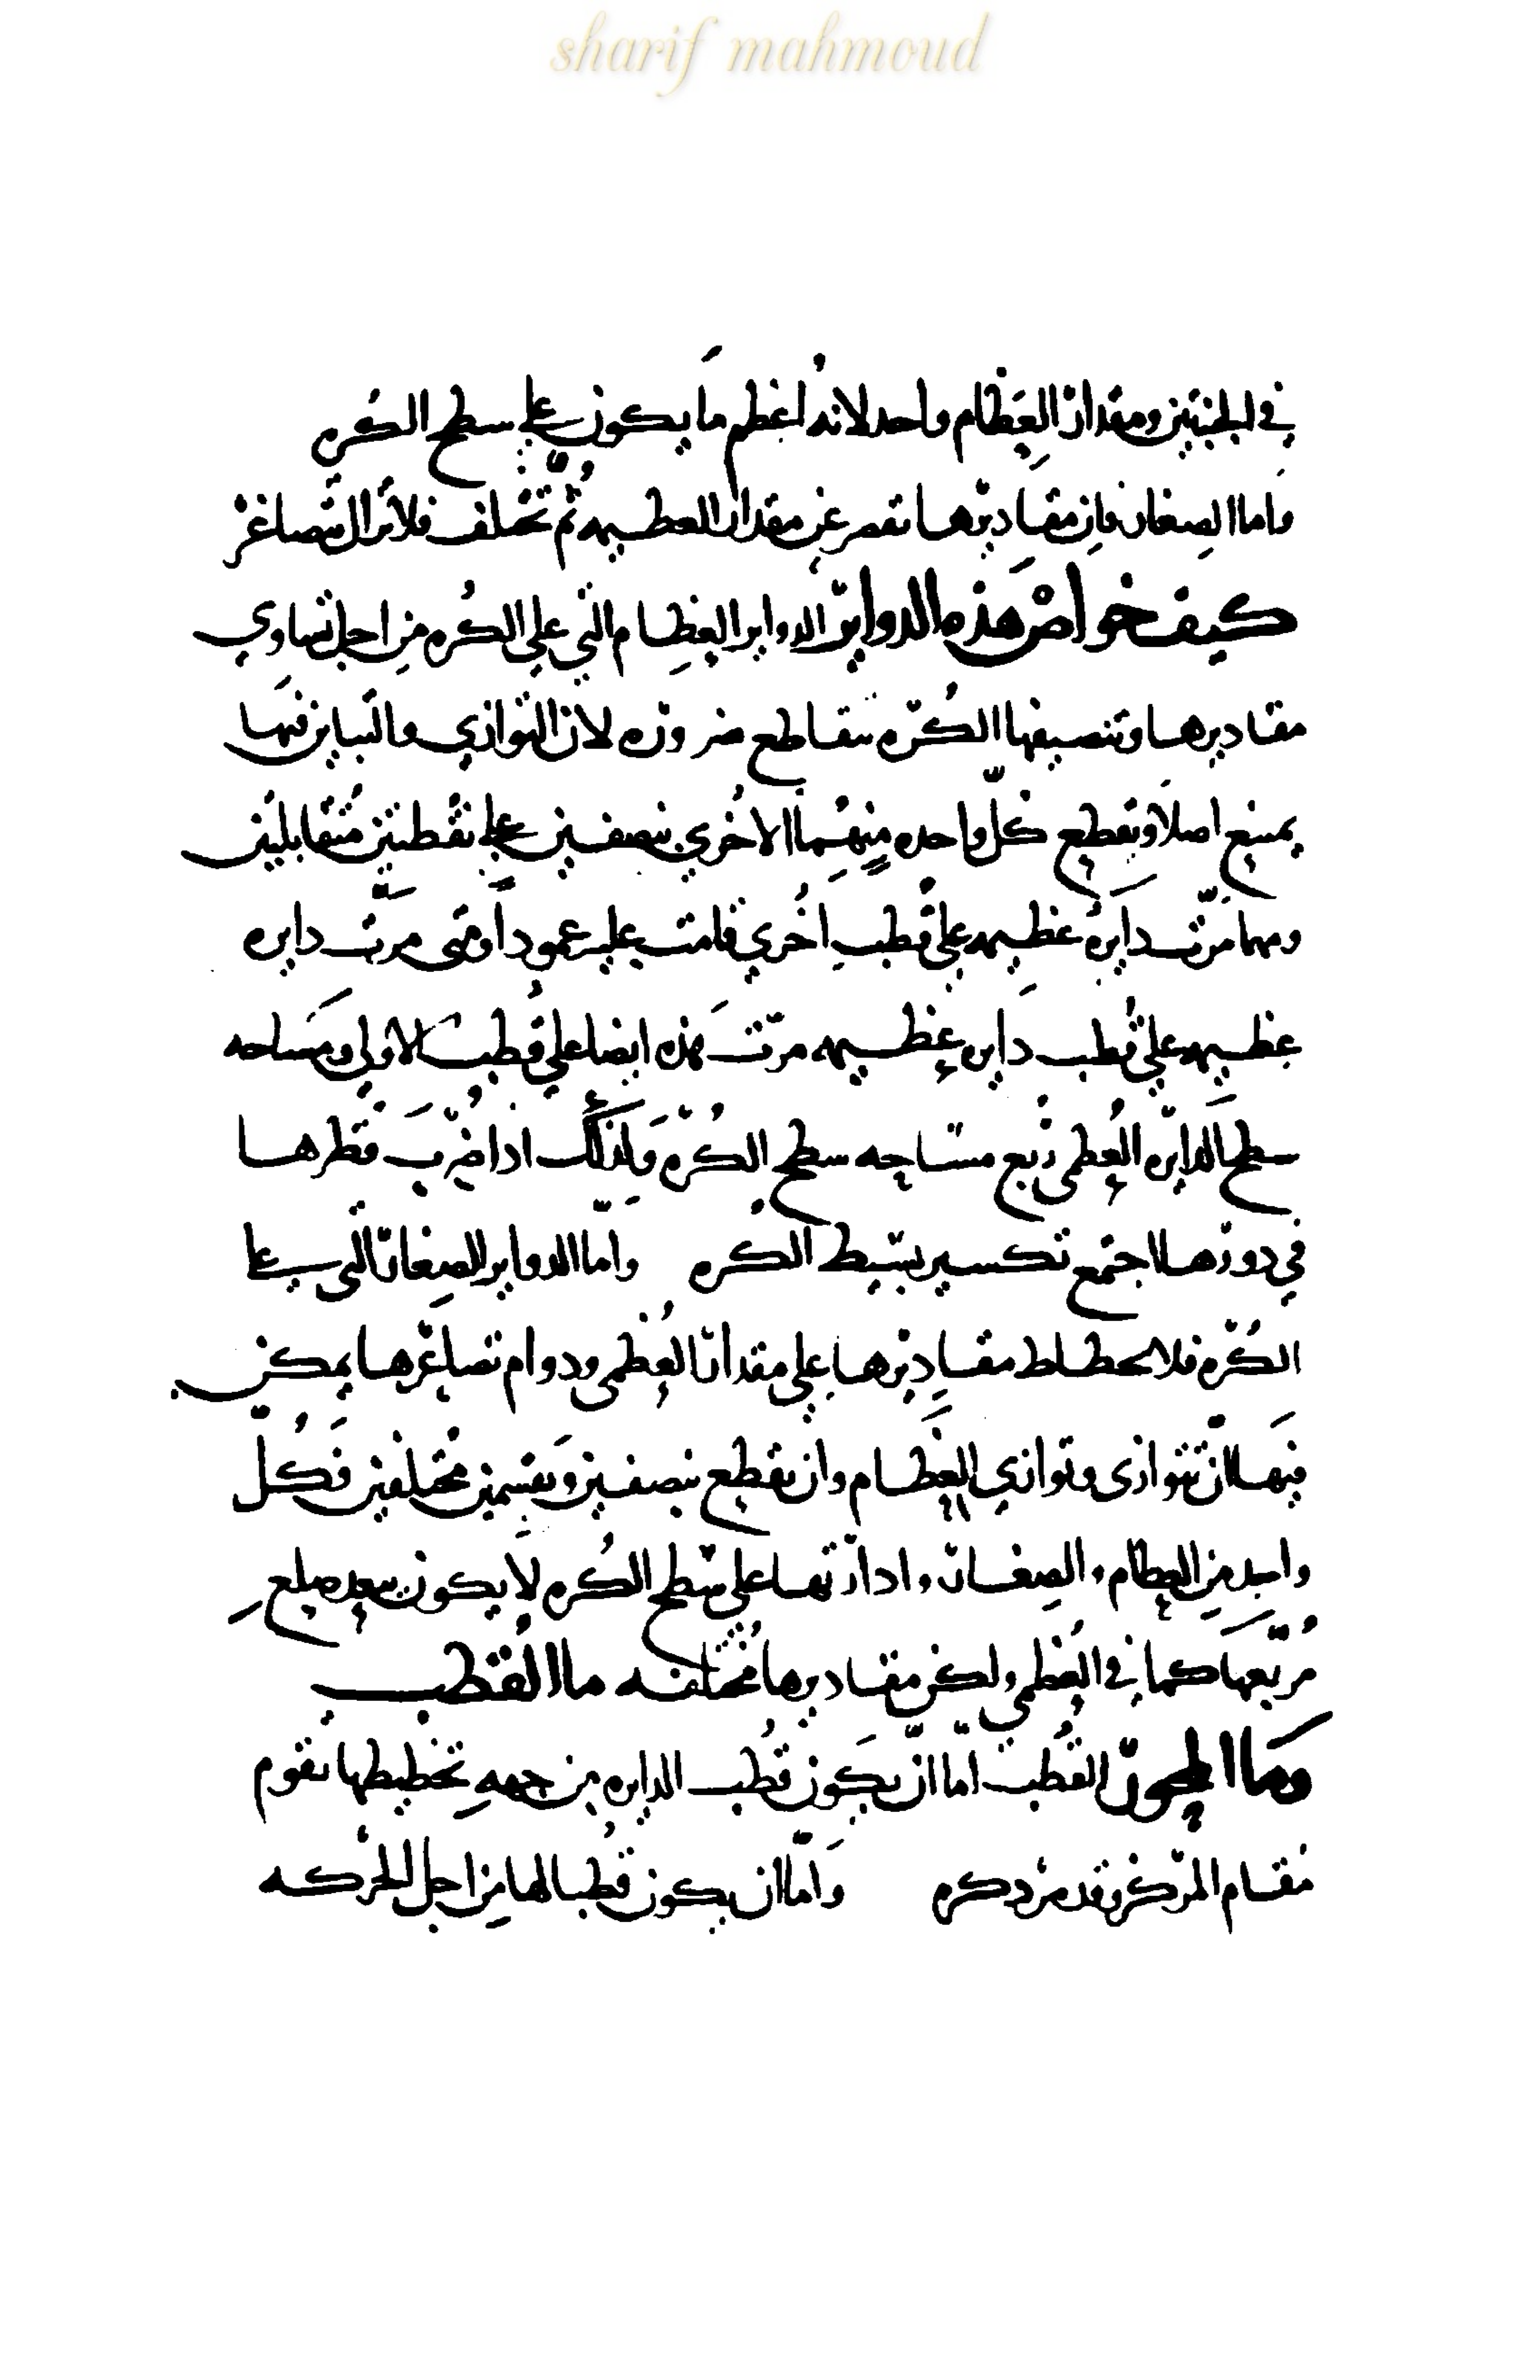 sharif mahmoud
في الجنبتين ومقدار العظام واحد لانه اعظم ما يكون على سطح الكره
واما الصغار فان مقاديرها تقصر عن مقدار العظيمه ثم تختلف فلا تزال تتصاغر
كيف خواص هذه الدواير الدواير العظام التي على الكره من اجل تساوي
مقاديرها وتنصيفها الكره تتقاطع ضروره لان التوازي والتباين فيها
يمتنع اصلا وتقطع كل واحده منهما الاخري بنصفين على نقطتين متقابلتين
ومهما مرت دايره عظيمه على قطب اخري قامت عليه عمودا ومتى مرت دايره
عظيمه على قطب دايره عظيمه مرت هذه ايضا على قطب الاولى ومساحه
سطح الدايره العظمى ربع مساحه سطح الكره ولذلك اذا ضرب قطرها
في دورها اجتمع تكسير بسيط الكره واما الدواير الصغار التي على
الكره فلانحطاط مقاديرها على مقدار العظمى ودوام تصاغرها يمكن
فيها ان تتوازى وتوازي العظام وان تقطع بنصفين وبقسمين مختلفين فكل
واحد من العظام والصغار وادارتها على سطح الكره لا يكون بعده ضلع
مربعها كما في العظمي ولكن مقاديرها مختلفه ما القطب
وما المحور القطب اما ان يكون قطب الدايره من جهه تخطيطها تقوم
مقام المركز وقد مر ذكره واما ان يكون قطبا لها من اجل الحركه